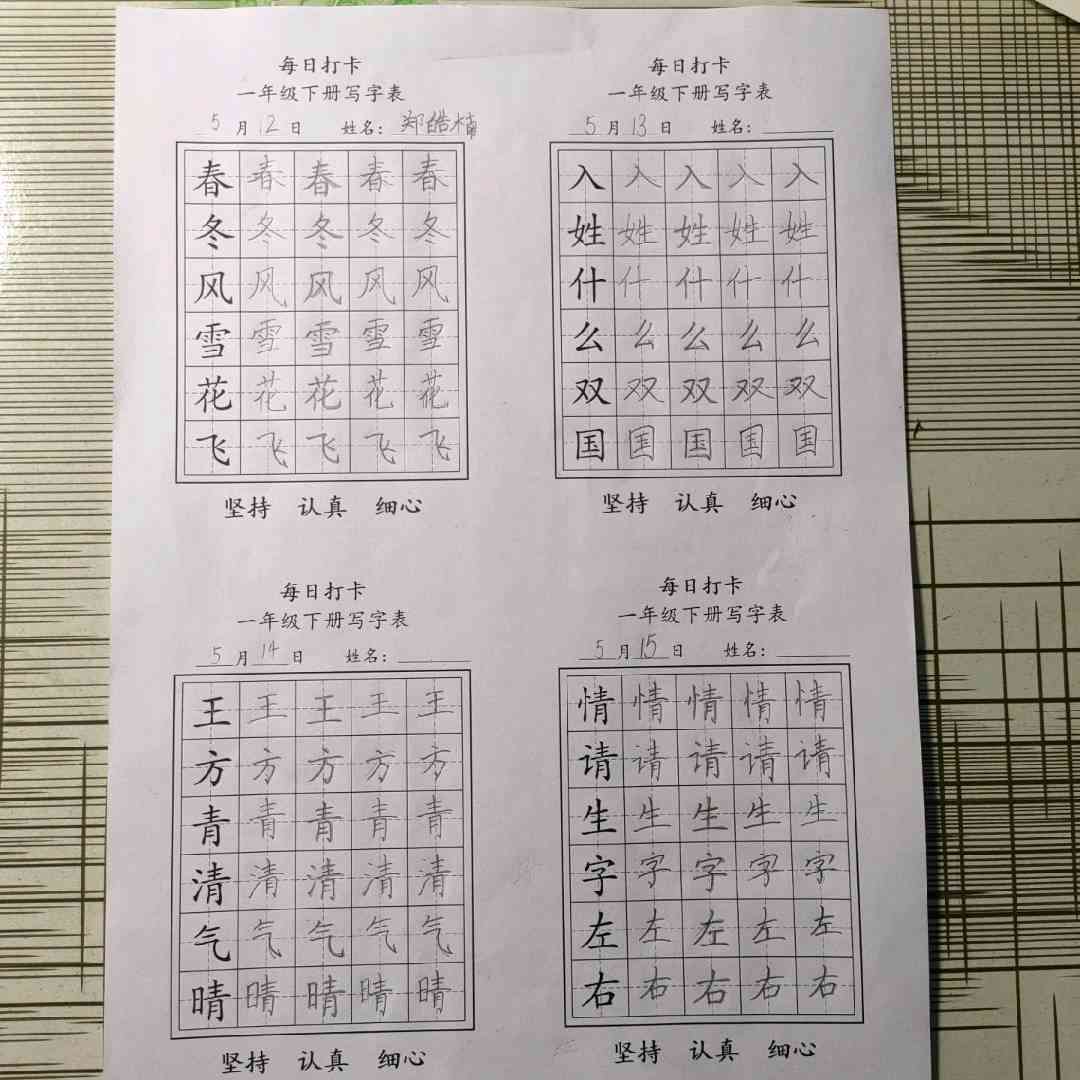 每日打卡
一年级下册写字表
5月12日 姓名：郑皓楠
春春春春春
冬冬冬冬冬
风风风风风
雪雪雪雪雪
花花花花花
飞飞飞飞飞
坚持 认真 细心
每日打卡
一年级下册写字表
5月13日 姓名：
入入入入入
姓姓姓姓姓
什什什什什
么么么么么
双双双双双
国国国国国
坚持 认真 细心
每日打卡
一年级下册写字表
5月14日 姓名：
王王王王王
方方方方方
青青青青青
清清清清清
气气气气气
晴晴晴晴晴
坚持 认真 细心
每日打卡
一年级下册写字表
5月15日 姓名：
情情情情情
请请请请请
生生生生生
字字字字字
左左左左左
右右右右右
坚持 认真 细心